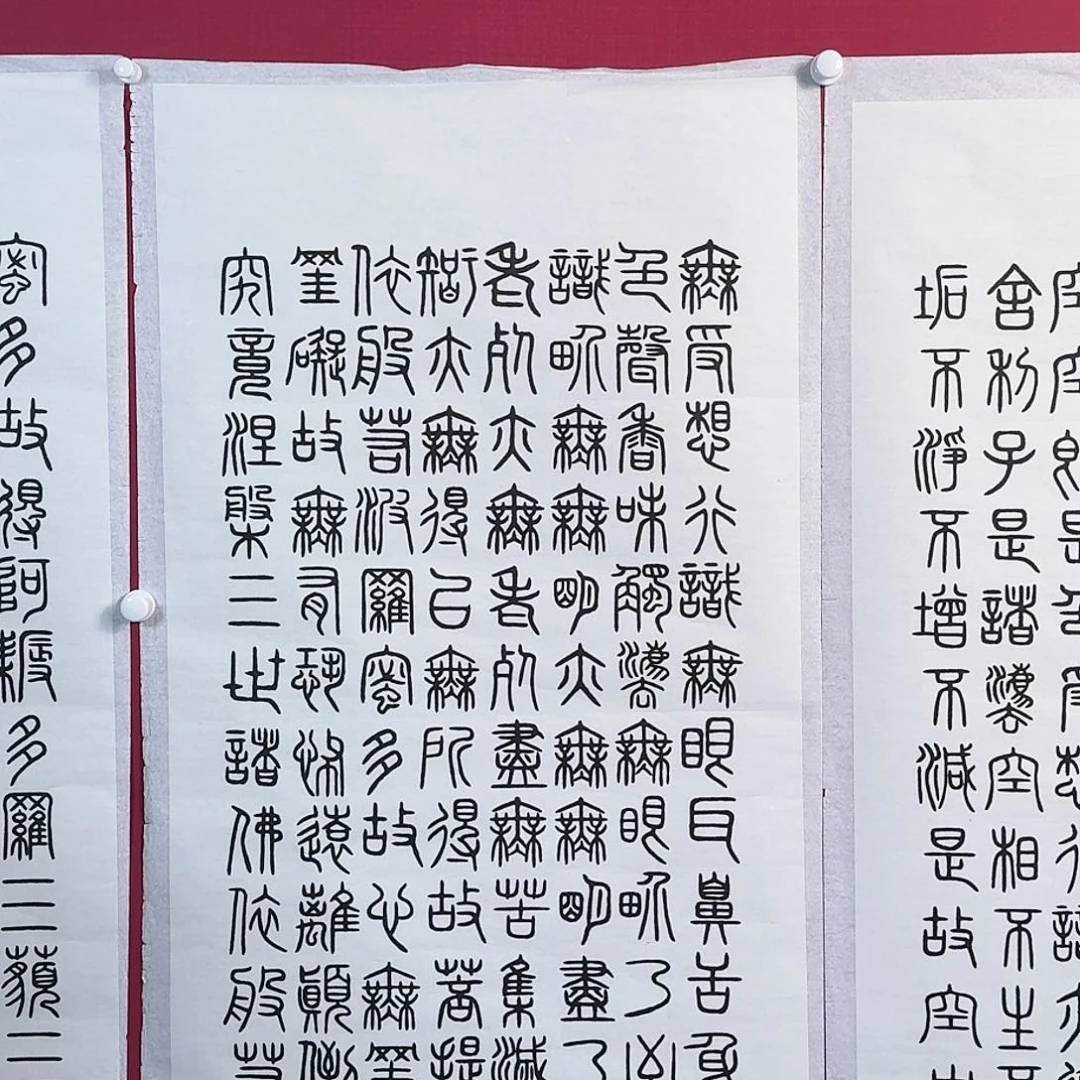 空空即是色受想行識亦復
舍利子是諸法空相不生不
垢不淨不增不減是故空中
無受想行識無眼耳鼻舌身
色聲香味觸法無眼界乃至
識界無無明亦無無明盡乃
老死亦無老死盡無苦集滅
智亦無得以無所得故菩提
依般若波羅蜜多故心無罣
罣礙故無有恐怖遠離顛倒
究竟涅槃三世諸佛依般若
蜜多故得阿耨多羅三藐三